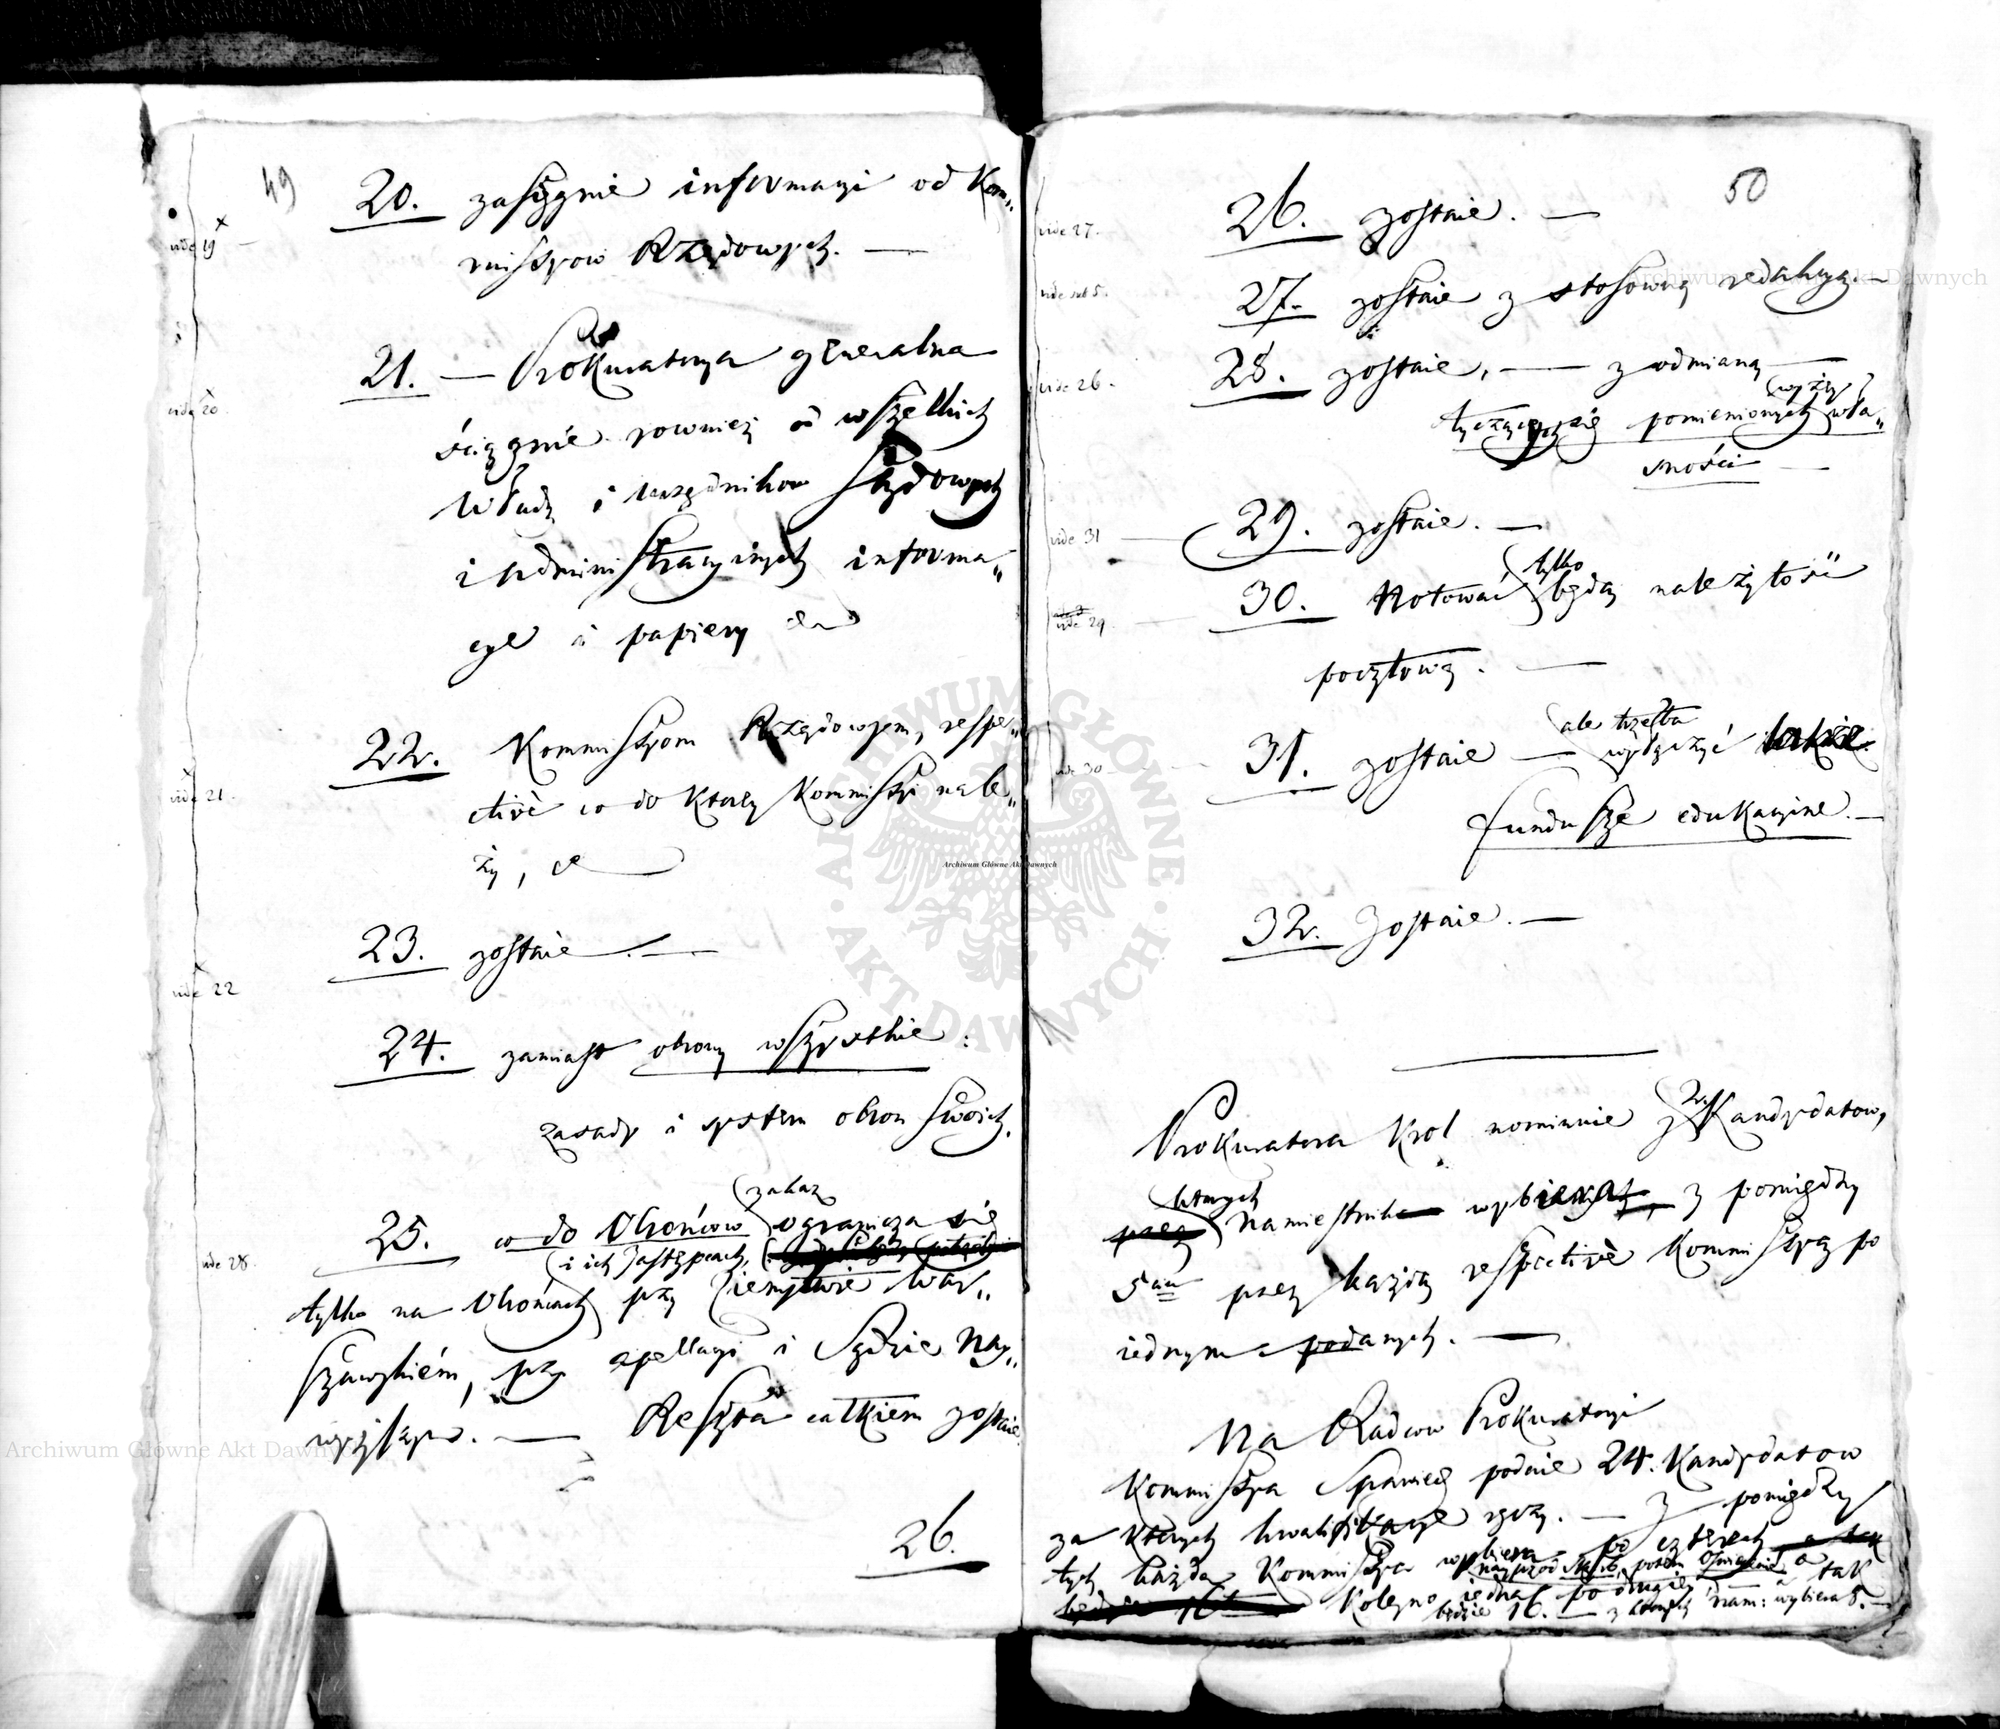 49
vide 19
20. zasięgnie informacyi od Kom„
missyow Rządowych. —
vide 20.
21. — Prokuratorya generalna
ściągnie rownież od wszelkich
Władz i urzędnikow Sądowych
i Administracyinych informa„
cye i papiery
vide 21.
22. Kommissyom Rządowym, respe„
ctivè co do Ktorey Kommissyi nale„
ży,
vide 22
23. zostaie. —
24. zamiast obrony wszystkie:
zasady i system obron swoich.
vide 28.
25. co do Obrońcow zakaz ogranicza się
i ich Zastępcach,
tylko na Obrońcach przy Ziemstwie War„
szawskiém, przy apellacyi i Sądzie Nay„
wyższym. — Reszta całkiem zostaie.
26.
50
vide 27.
26. zostaie. —
vide sub 5.
27. zostaie z stosowną redakcyą —
vide 26.
28. zostaie, — z odmianą —
wyżey
tyczących się pomienionych wła„
sności —
vide 31
29. zostaie. —
vide 29
30. Notować tylko będą należytość
pocztową. —
vide 30
31. zostaie — ale trzeba wyłączyć
fundusze edukacyine. —
32. Zostaie. —
Prokuratora Krol nominuie z 2. Kandydatow,
ktorych Namiestnik wybierze, z pomiędzy
5ciu przez każdą respective Kommissyą po
iednym podanych. —
Na Radcow Prokuratoryi
Kommissya Sprawied. podaie 24. Kandydatow
za ktorych kwalifikacye ręczy. — Z pomiędzy
tych każda Kommissya wybiera po czterech
nayprzod Skarb, potém Oświecenie, a tak
Koleyno iedna po drugiey
będzie 16. — z ktorych Nam: wybiera 8. —
Archiwum Główne Akt Dawnych
Archiwum Główne Akt Dawnych
Archiwum Główne Akt Dawnych
ARCHIWUM GŁÓWNE AKT DAWNYCH